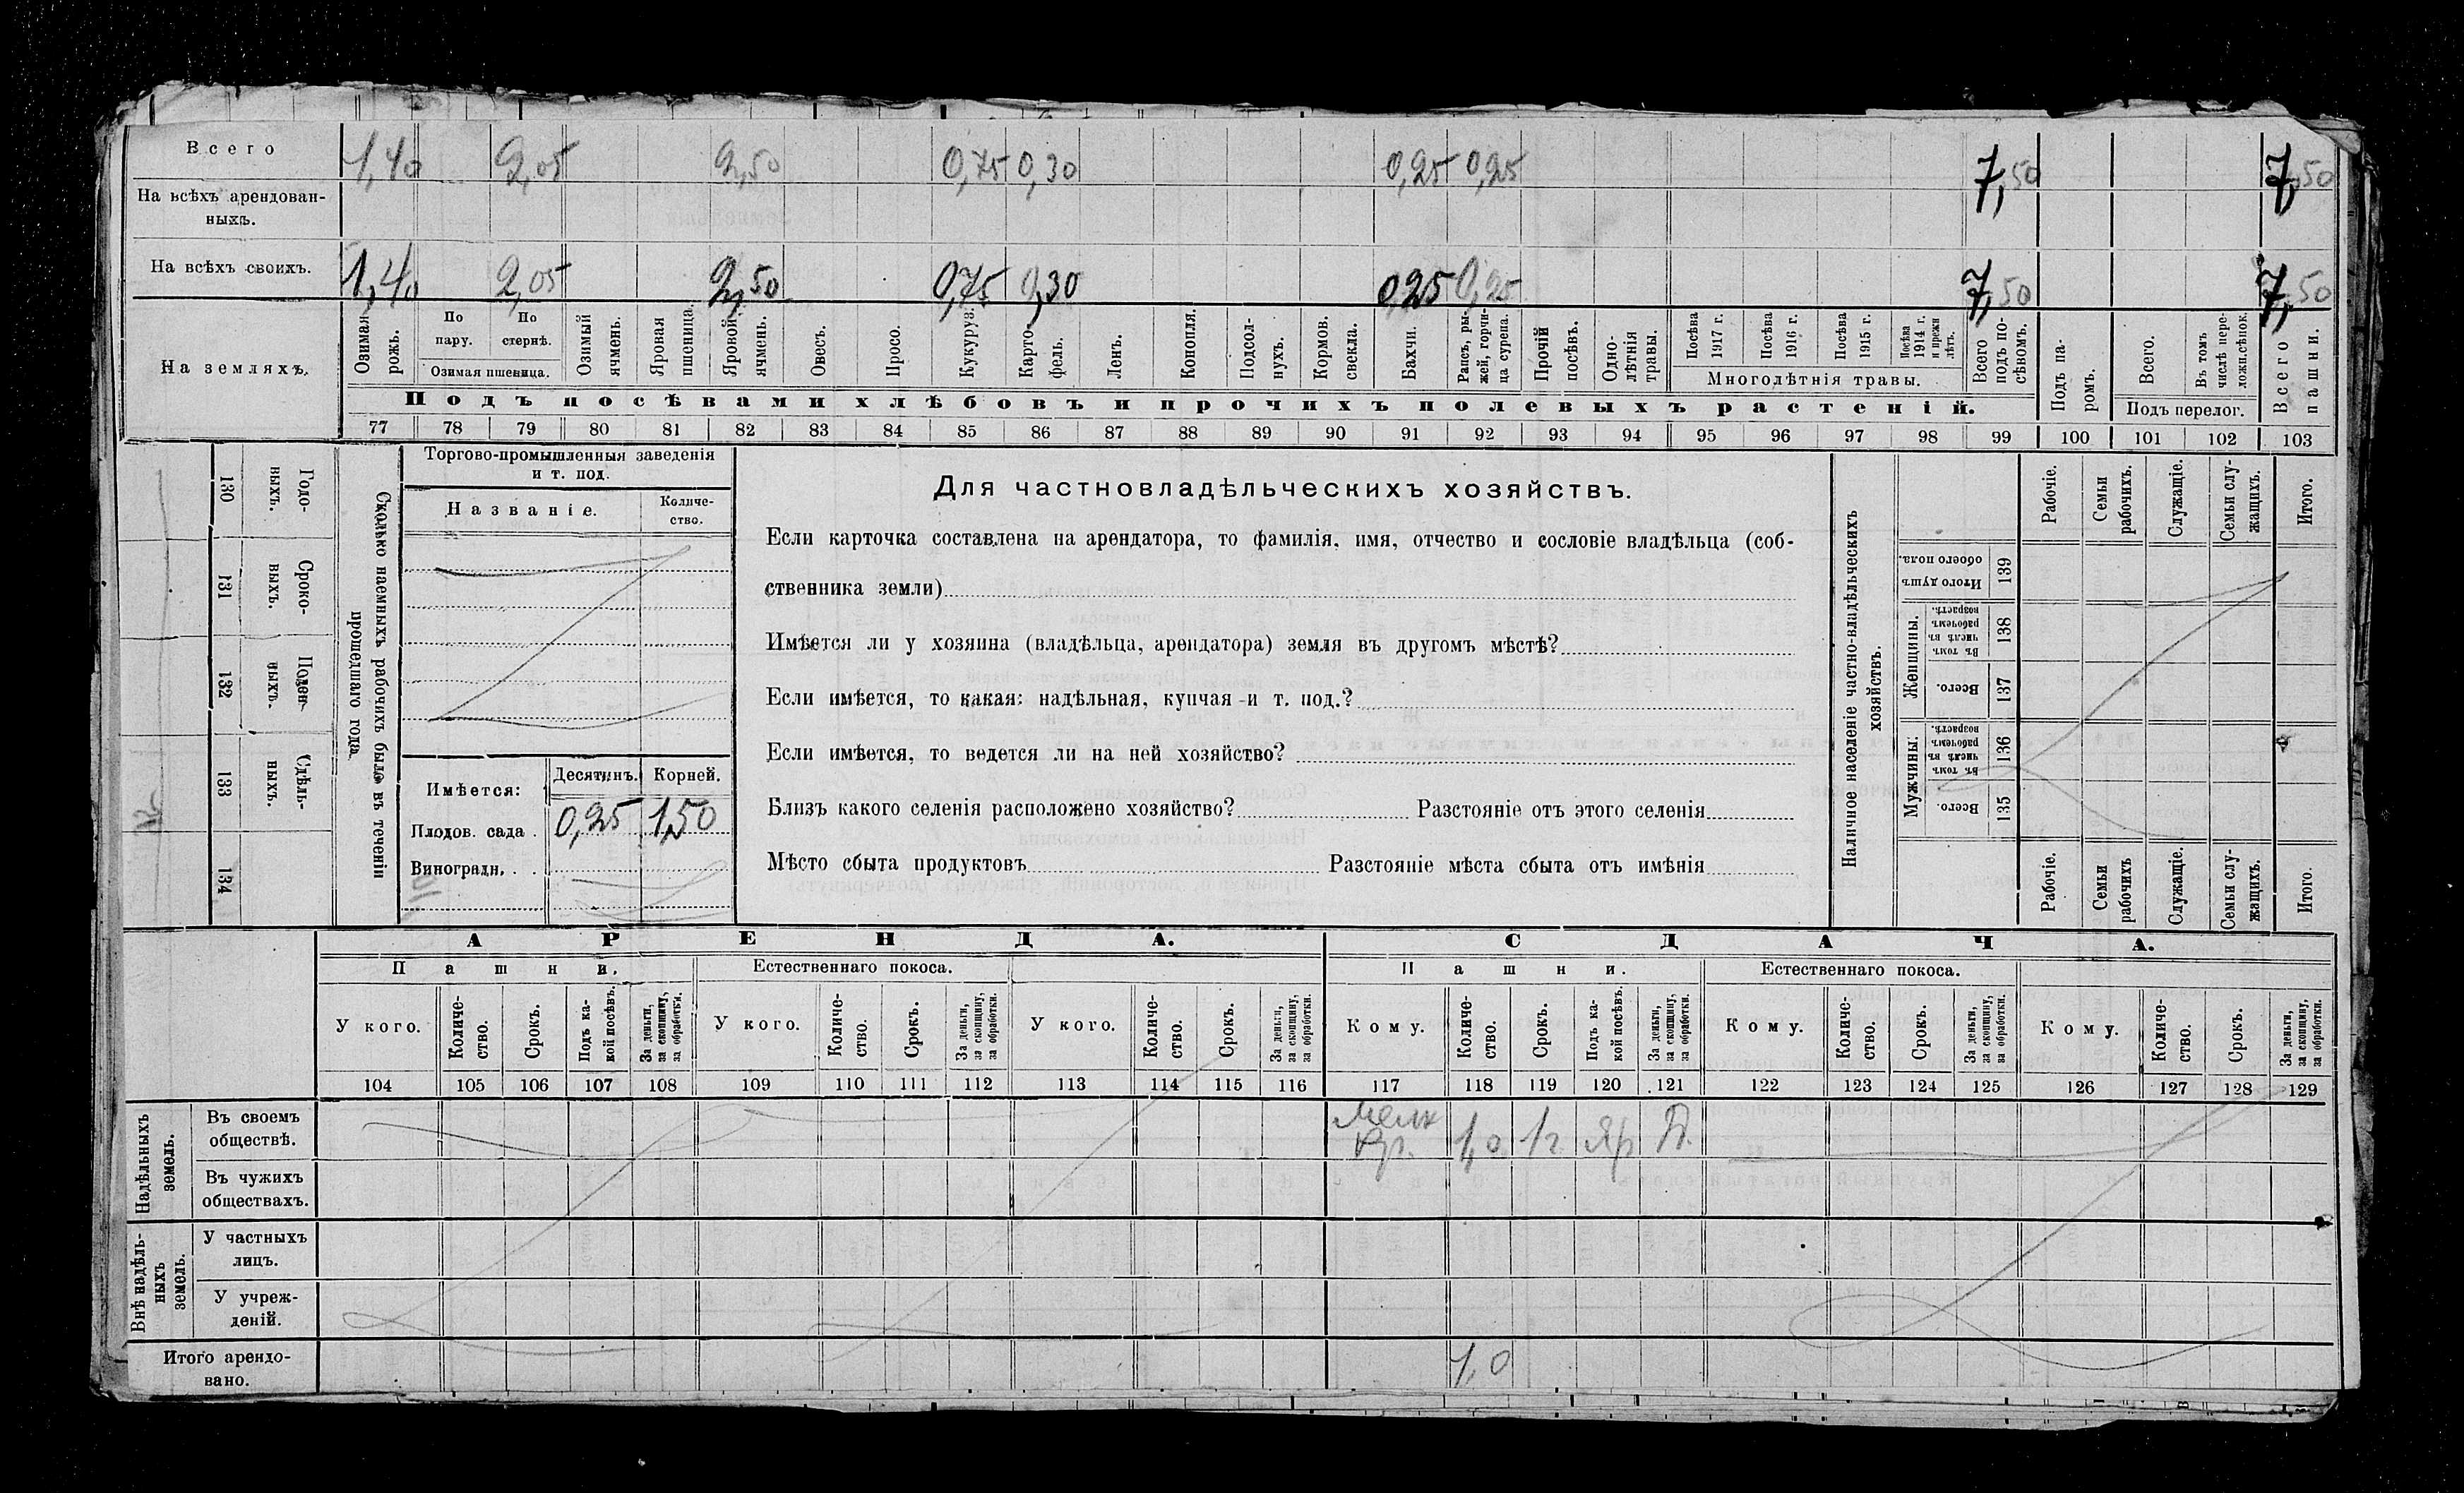 Всего 1,40 2,05 2,50 0,75 0,30 0,25 0,25 7,50 7,50
На всѣхъ арендован-
ныхъ.
На всѣхъ своихъ. 1,40 2,05 2,50 0,75 0,30 0,25 0,25 7,50 7,50
На земляхъ.
Озимая рожь.
По пару.
По стернѣ.
Озимая пшеница.
Озимый ячмень.
Яровая пшеница.
Яровой ячмень.
Овесъ.
Просо.
Кукуруз.
Карто-
фель.
Ленъ.
Конопля.
Подсол-
нухъ.
Кормов. свекла.
Бахчи.
Рапсъ, ры-
жей, горчи-
ца сурепа.
Прочій посѣвъ.
Одно-
лѣтнія
травы.
Посѣва 1917 г.
Посѣва 1916 г.
Посѣва 1915 г.
Посѣва 1914 г. и прежн лѣтъ.
Многолѣтнія травы.
Всего подъ по-
сѣвомъ.
Подъ посѣвами хлѣбовъ и прочихъ полевыхъ растеній.
Подъ па-
ромъ.
Всего.
Въ томъ числѣ пере-
лож.сѣнок.
Подъ перелог.
Всего пашни.
77 78 79 80 81 82 83 84 85 86 87 88 89 90 91 92 93 94 95 96 97 98 99 100 101 102 103
Годо-
выхъ.
130
Сроко-
выхъ.
131
Поден-
ныхъ.
132
Сдѣль-
ныхъ.
133
134
Сколько наемныхъ рабочихъ было въ теченіи
прошедшаго года.
Торгово-промышленныя заведенія
и т. под.
Названіе.
Количе-
ство.
Имѣется: Десятинъ. Корней.
Плодов. сада . 0,25 150
Виноградн. . .
Для частновладѣльческихъ хозяйствъ.
Если карточка составлена на арендатора, то фамилія, имя, отчество и сословіе владѣльца (соб-
ственника земли)
Имѣется ли у хозяина (владѣльца, арендатора) земля въ другомъ мѣстѣ?
Если имѣется, то какая: надѣльная, купчая и т. под.?
Если имѣется, то ведется ли на ней хозяйство?
Близъ какого селенія расположено хозяйство? Разстояніе отъ этого селенія
Мѣсто сбыта продуктовъ Разстояніе мѣста сбыта отъ имѣнія
Наличное населеніе частно-владѣльческихъ
хозяйствъ.
Рабочіе.
Семьи рабочихъ.
Служащіе.
Семьи слу-
жащихъ.
Итого.
Итого душъ обоего пола.
139
Женщины.
Въ томъ числѣ въ рабочемъ возрастѣ.
138
Всего.
137
Мужчины.
Въ томъ числѣ въ рабочемъ возрастѣ.
136
Всего.
135
Рабочіе.
Семьи рабочихъ
Служащіе.
Семьи слу-
жащихъ.
Итого.
АРЕНДА. СДАЧА.
Пашни. Естественнаго покоса. Пашни. Естественнаго покоса.
У кого.
Количе-
ство.
Срокъ.
Подъ ка-
кой посѣвъ.
За деньги,
за скопщину,
за обработки.
У кого.
Количе-
ство.
Срокъ.
За деньги,
за скопщину,
за обработки.
У кого.
Количе-
ство.
Срокъ.
За деньги,
за скопщину,
за обработки.
Кому.
Количе-
ство.
Срокъ.
Подъ ка-
кой посѣвъ.
За деньги,
за скопщину,
за обработки.
Кому.
Количе-
ство.
Срокъ.
За деньги,
за скопщину,
за обработки.
Кому.
Количе-
ство.
Срокъ.
За деньги,
за скопщину,
за обработки.
104 105 106 107 108 109 110 111 112 113 114 115 116 117 118 119 120 121 122 123 124 125 126 127 128 129
Надѣльныхъ
земель.
Въ своемъ
обществѣ.
кр. 1,0 1 г Яр Д.
Въ чужихъ
обществахъ.
Внѣ надѣль-
ныхъ
земель.
У частныхъ
лицъ.
У учреж-
деній.
Итого арендо-
вано.
1,0